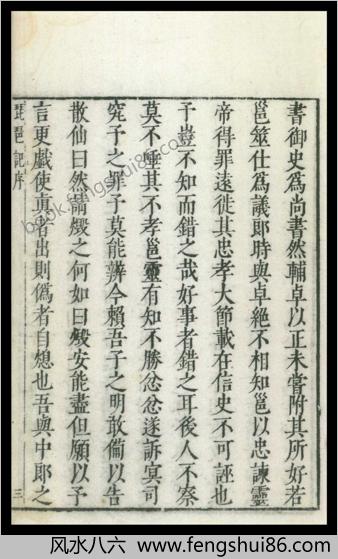 書御史爲尚書然輔卓以正未嘗附其所好若
邕筮仕爲議郎時與卓絕不相知邕以忠諫靈
帝得罪遠徙其忠孝大節載在信史不可誣也
予豈不知而錯之哉好事者錯之耳後人不察
莫不唾其不孝邕靈有知不勝忿忿遂訴冥司
究予之罪予莫能辨今賴吾子之明敢僃以告
散仙曰然鬻燬之何如曰燬安能盡但願以予
言更戲使眞者出則僞者自熄也吾與中郎之
琵琶記序
三
book.fengshui86.com
风水八六 www.fengshui86.com